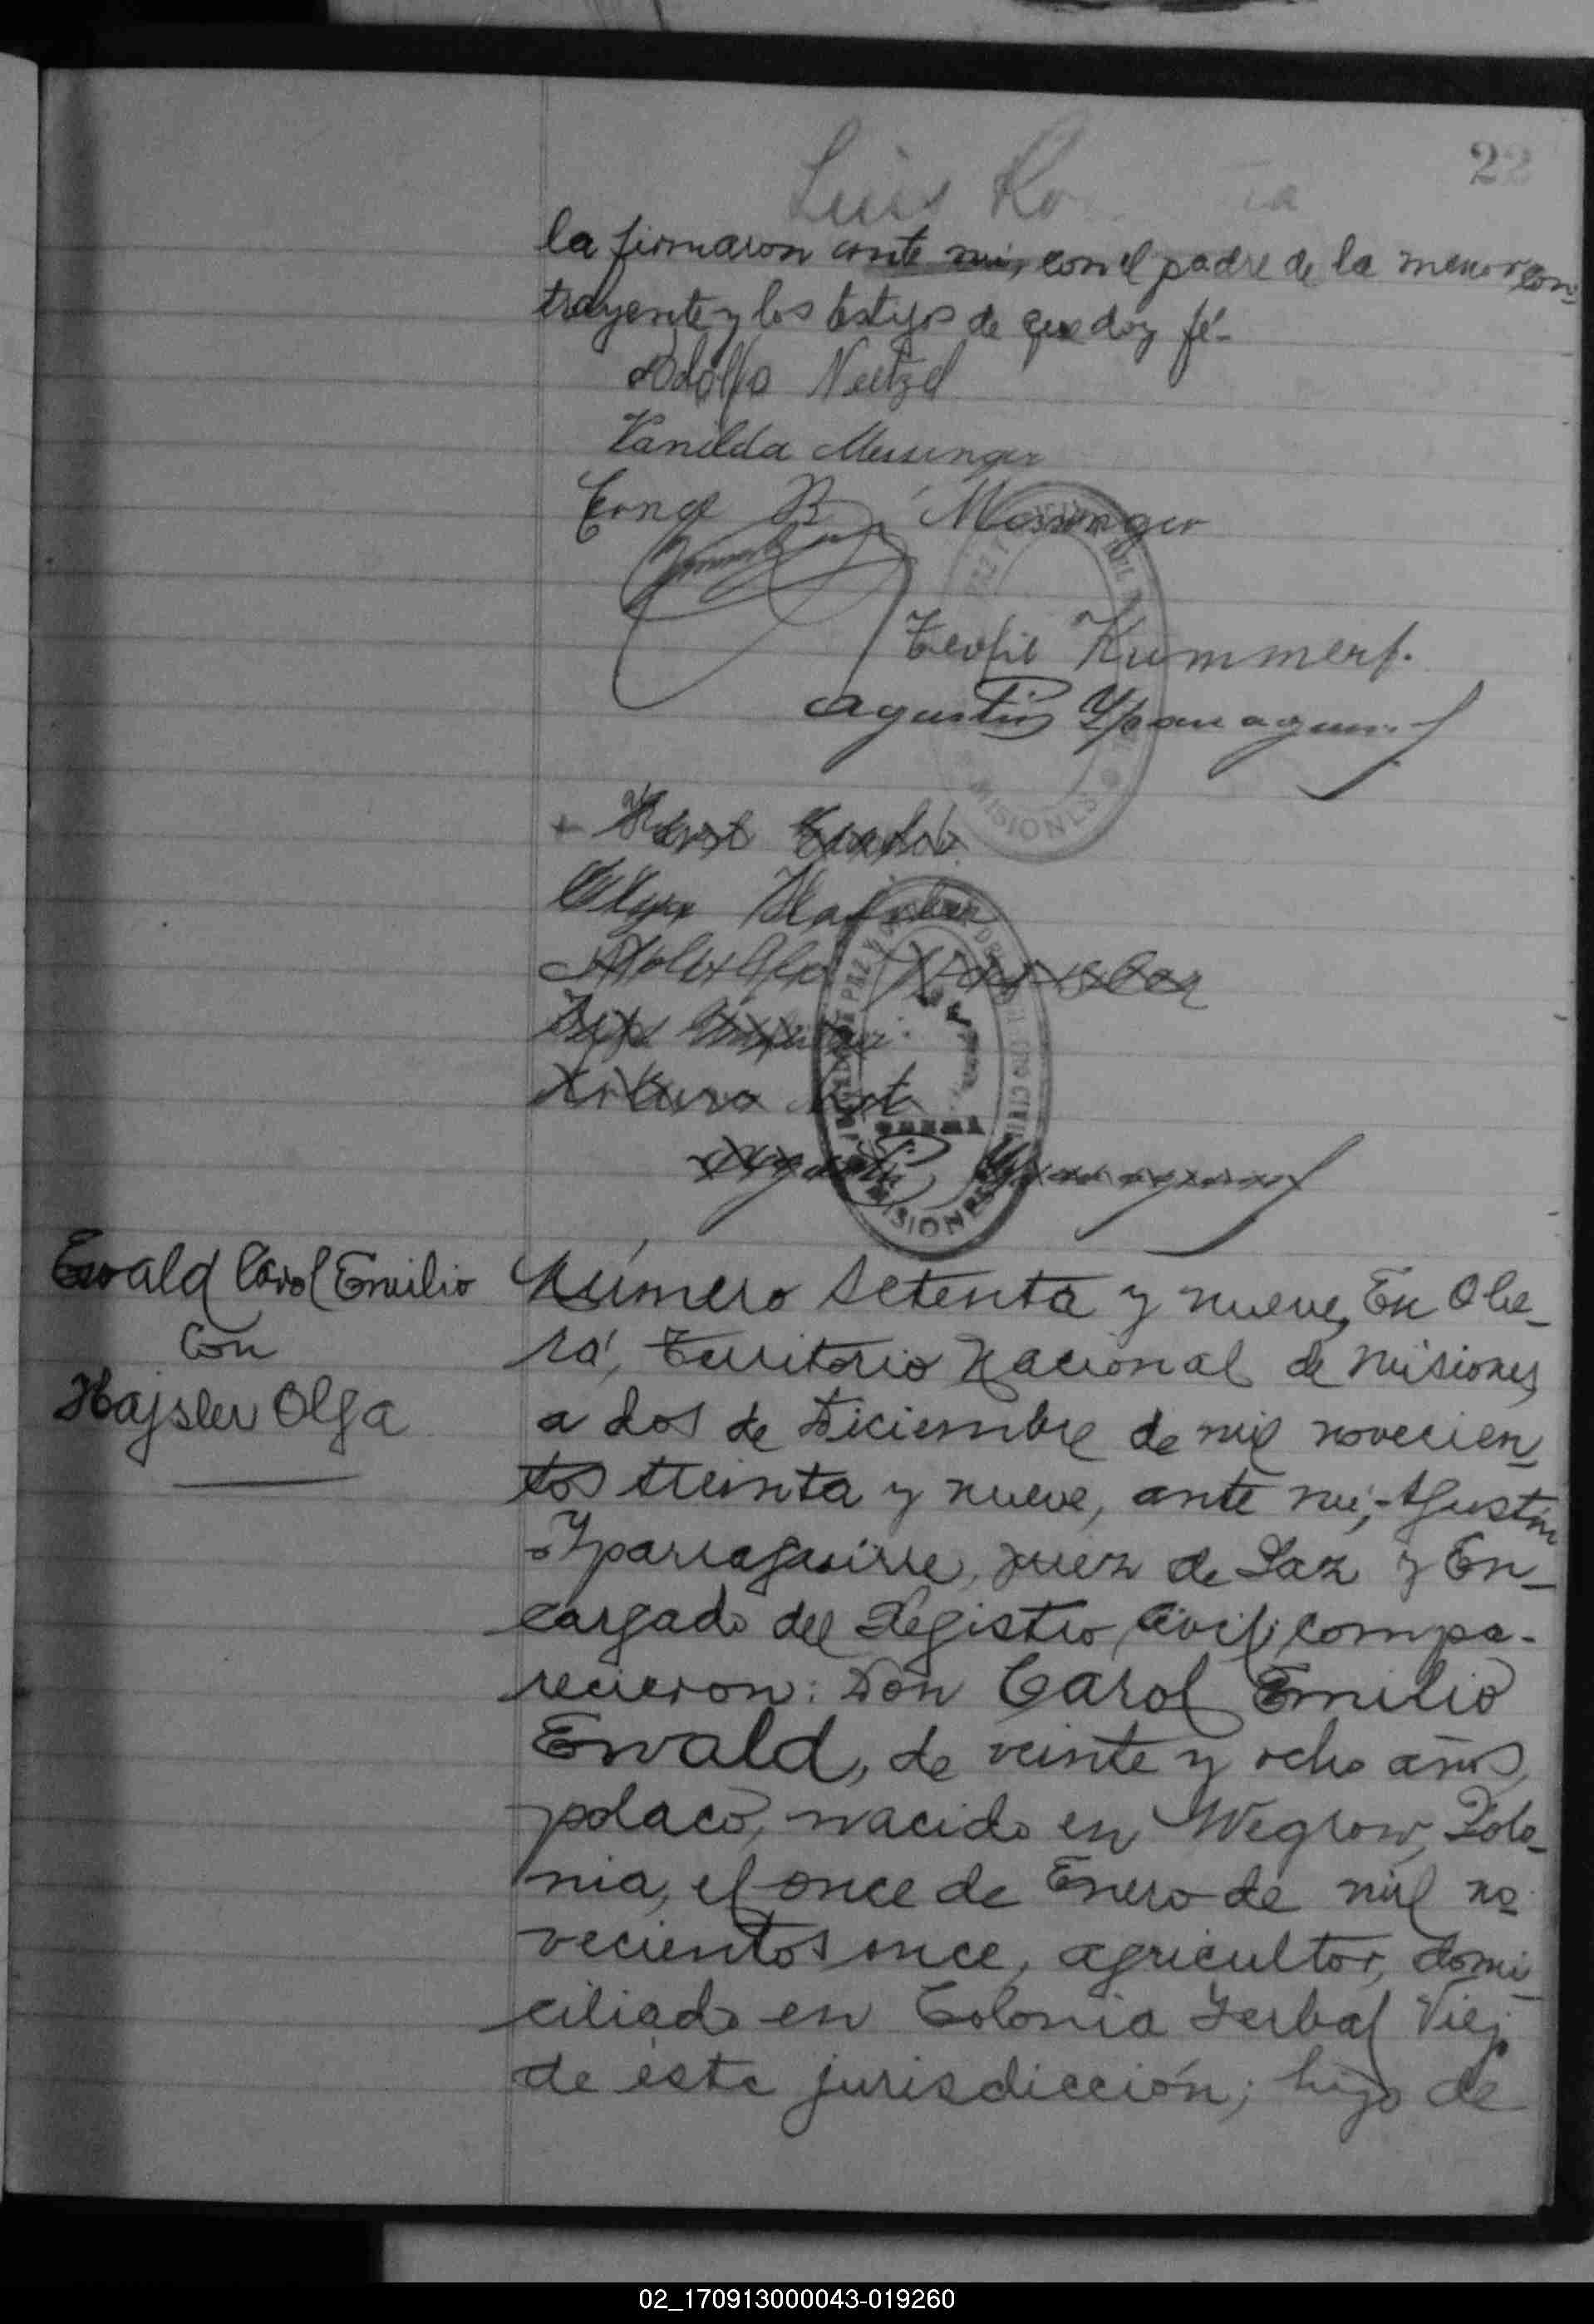 22
Luis
la firmaron ante mi, con el padre de la menor con-
trayente y los testigos de que doy fé-
Adolfo Neitzel
Vanilda Messinger
Messinger
Teofil Kummerf.
Agustin Yparraguirre
MISIONES
Olga
MISIONES
Ewald Carol Emilio
con
Hajsler Olga
Número setenta y nueve, En Obe-
rá, Territorio Nacional de Misiones,
a dos de Diciembre de mil novecien-
tos treinta y nueve, ante mi, Agustin
Yparraguirre, Juez de Paz y En-
cargado del Registro Civil, compa-
recieron: Don Carol Emilio
Ewald, de veinte y ocho años,
polaco, nacido en Wegrow, Polo-
nia, el once de Enero de mil no-
vecientos once, agricultor, domi-
ciliado en Colonia Yerbal Viejo
de ésta jurisdicción; hijo de
02_170913000043-019260